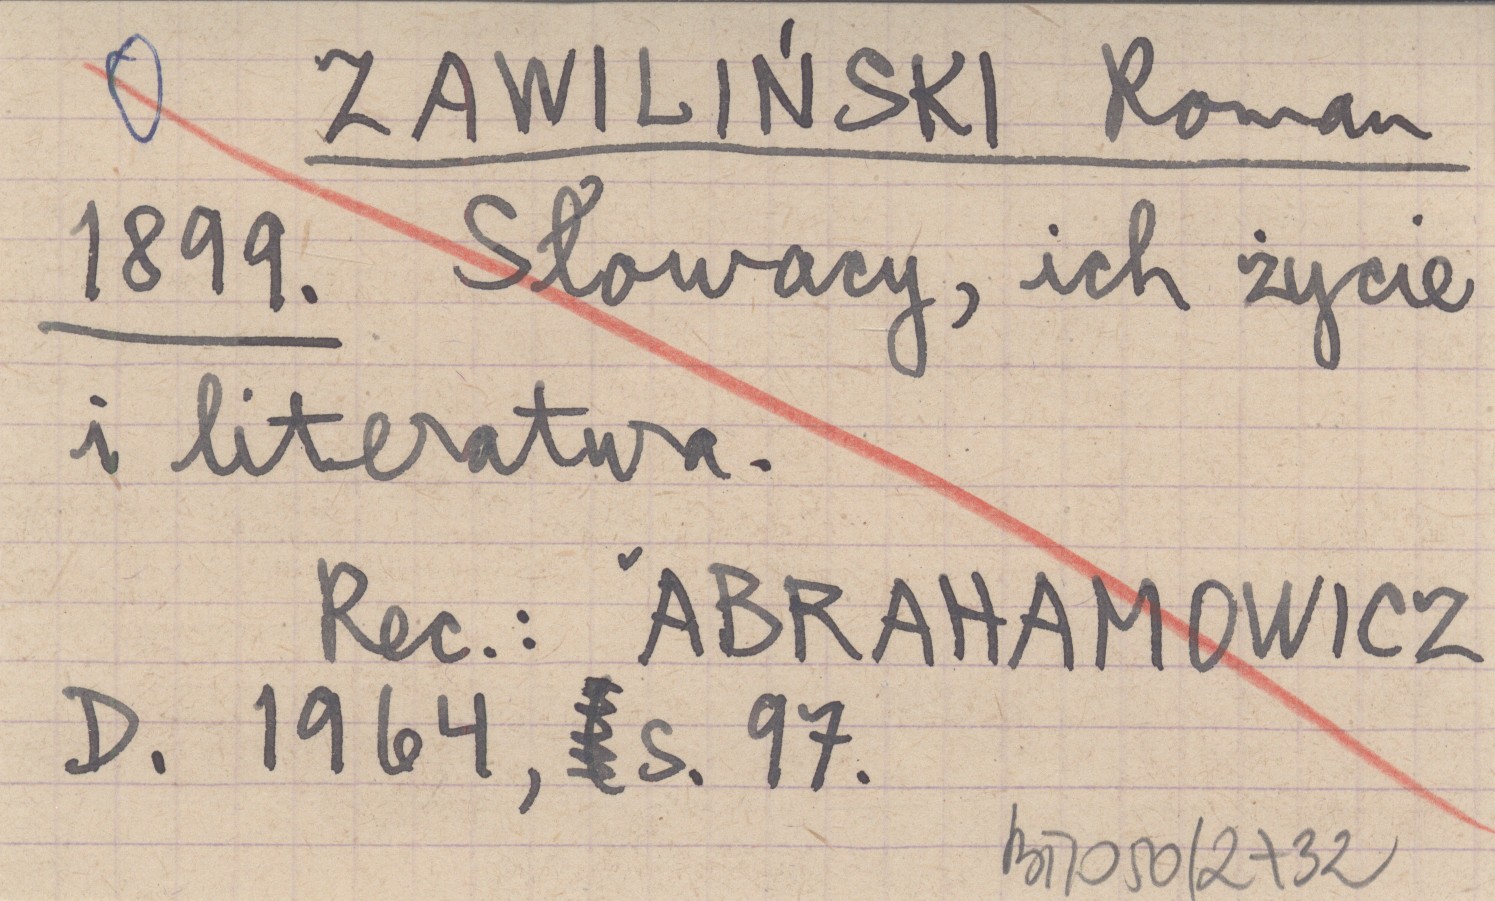 ZAWILIŃSKI Roman
1899. Słowacy, ich życie
i literatura.
Rec.: ABRAHAMOWICZ
D. 1964, s. 97.